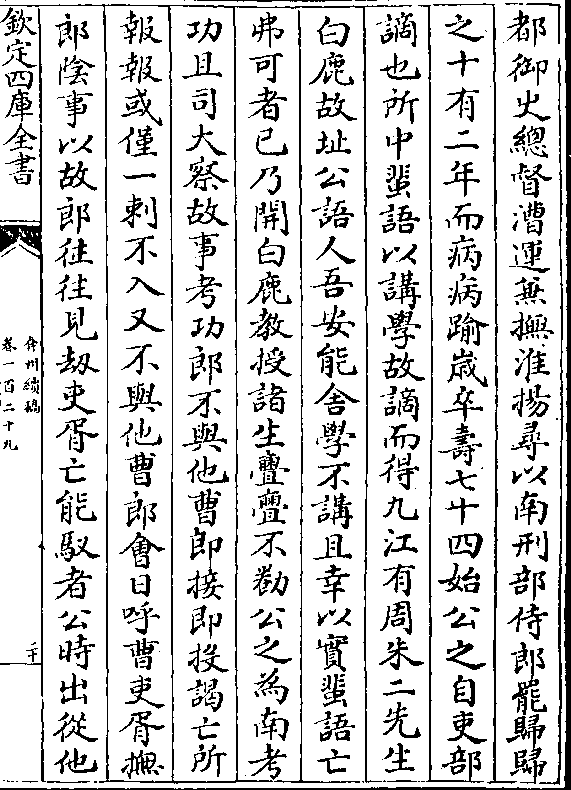 都御史總督漕運兼撫淮揚尋以南刑部侍郎罷歸歸
之十有二年而病病踰歲卒壽七十四始公之自吏部
謫也所中蜚語以講學故謫而得九江有周朱二先生
白鹿故址公語人吾安能舍學不講且幸以實蜚語亡
弗可者已乃開白鹿教授諸生亹亹不勌公之為南考
功且司大察故事考功郎不與他曹郎接即投謁亡所
報報或僅一刺不入又不與他曹郎會日呼曹吏胥撫
郎陰事以故郎徃徃見劫吏胥亡能馭者公時出從他
欽定四庫全書
弇州續稿
卷一百二十九
二十